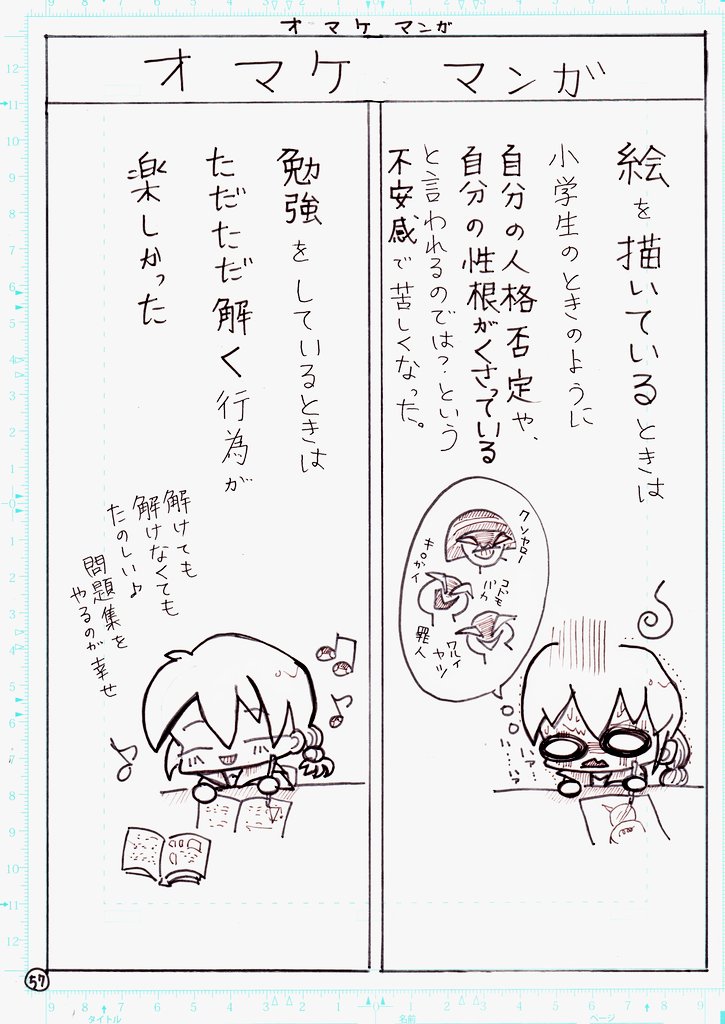 オマケマンガ
オマケ マンガ
絵を描いているときは
小学生のときのように
自分の人格否定や、
自分の性根がくさっている
と言われるのでは?という
不安感で苦しくなった。
クソヤロー
キ
コドモ
バカ
ワルイ
ヤツ
罪人
勉強をしているときは
ただただ解く行為が
楽しかった
解けても
解けなくても
たのしい♪
問題集を
やるのが幸せ
57
タイトル
名前
ページ